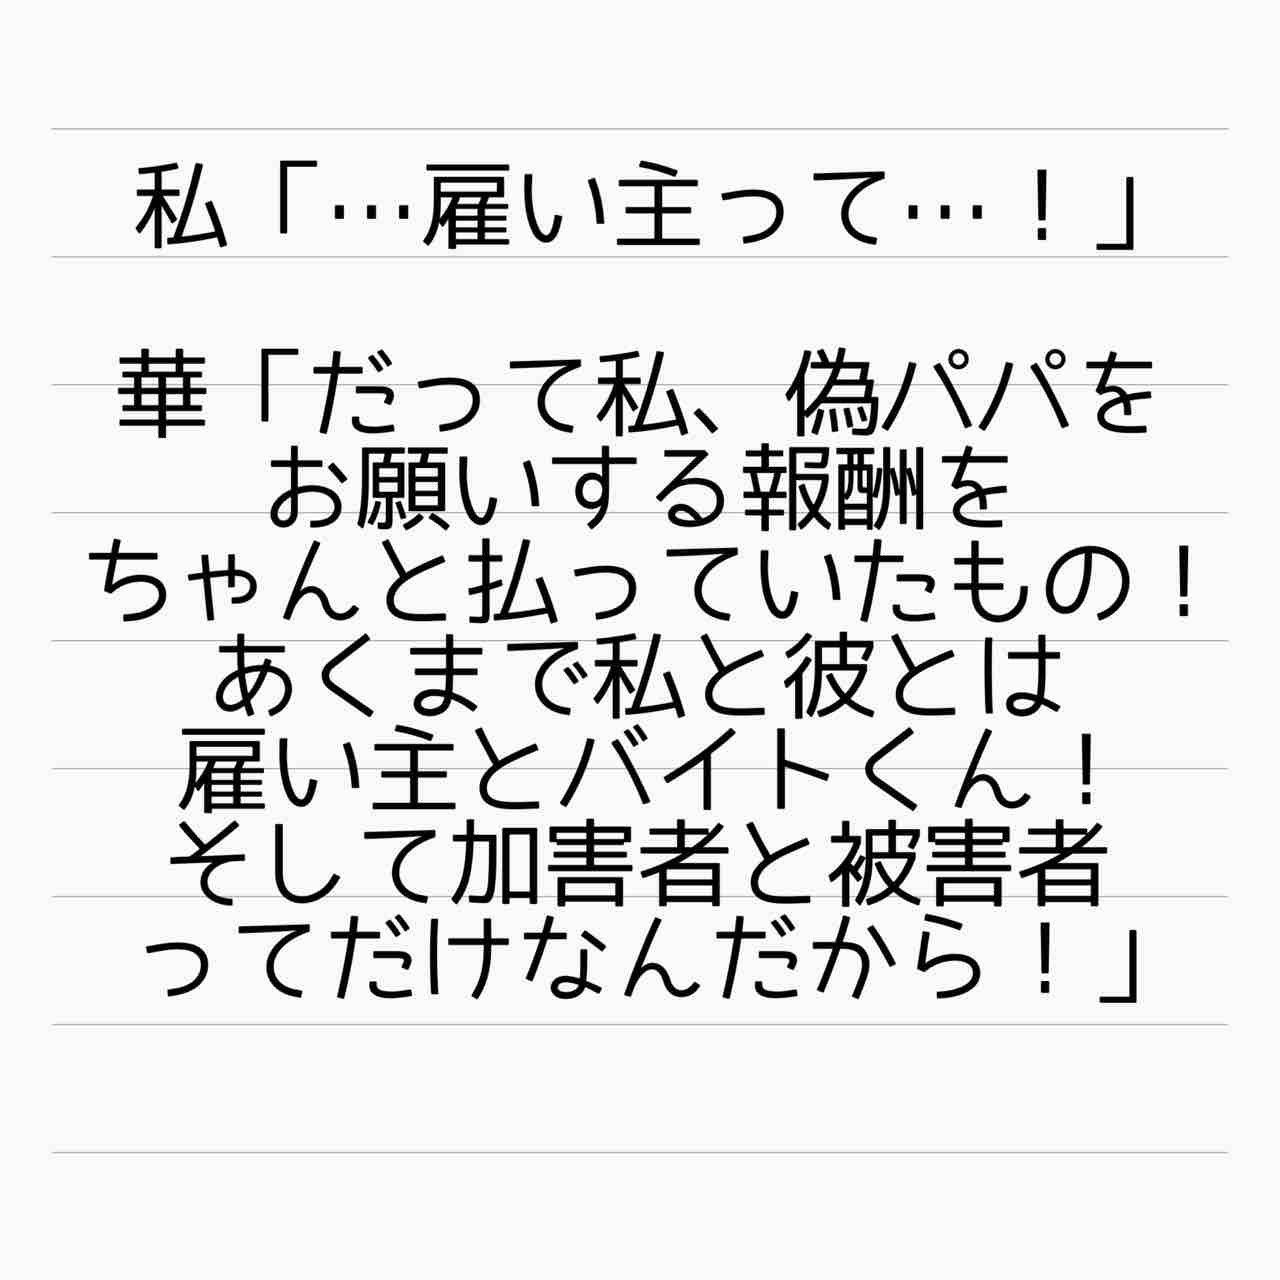 私「…雇い主って…！」
華「だって私、偽パパを
お願いする報酬を
ちゃんと払っていたもの！
あくまで私と彼とは
雇い主とバイトくん！
そして加害者と被害者
ってだけなんだから！」